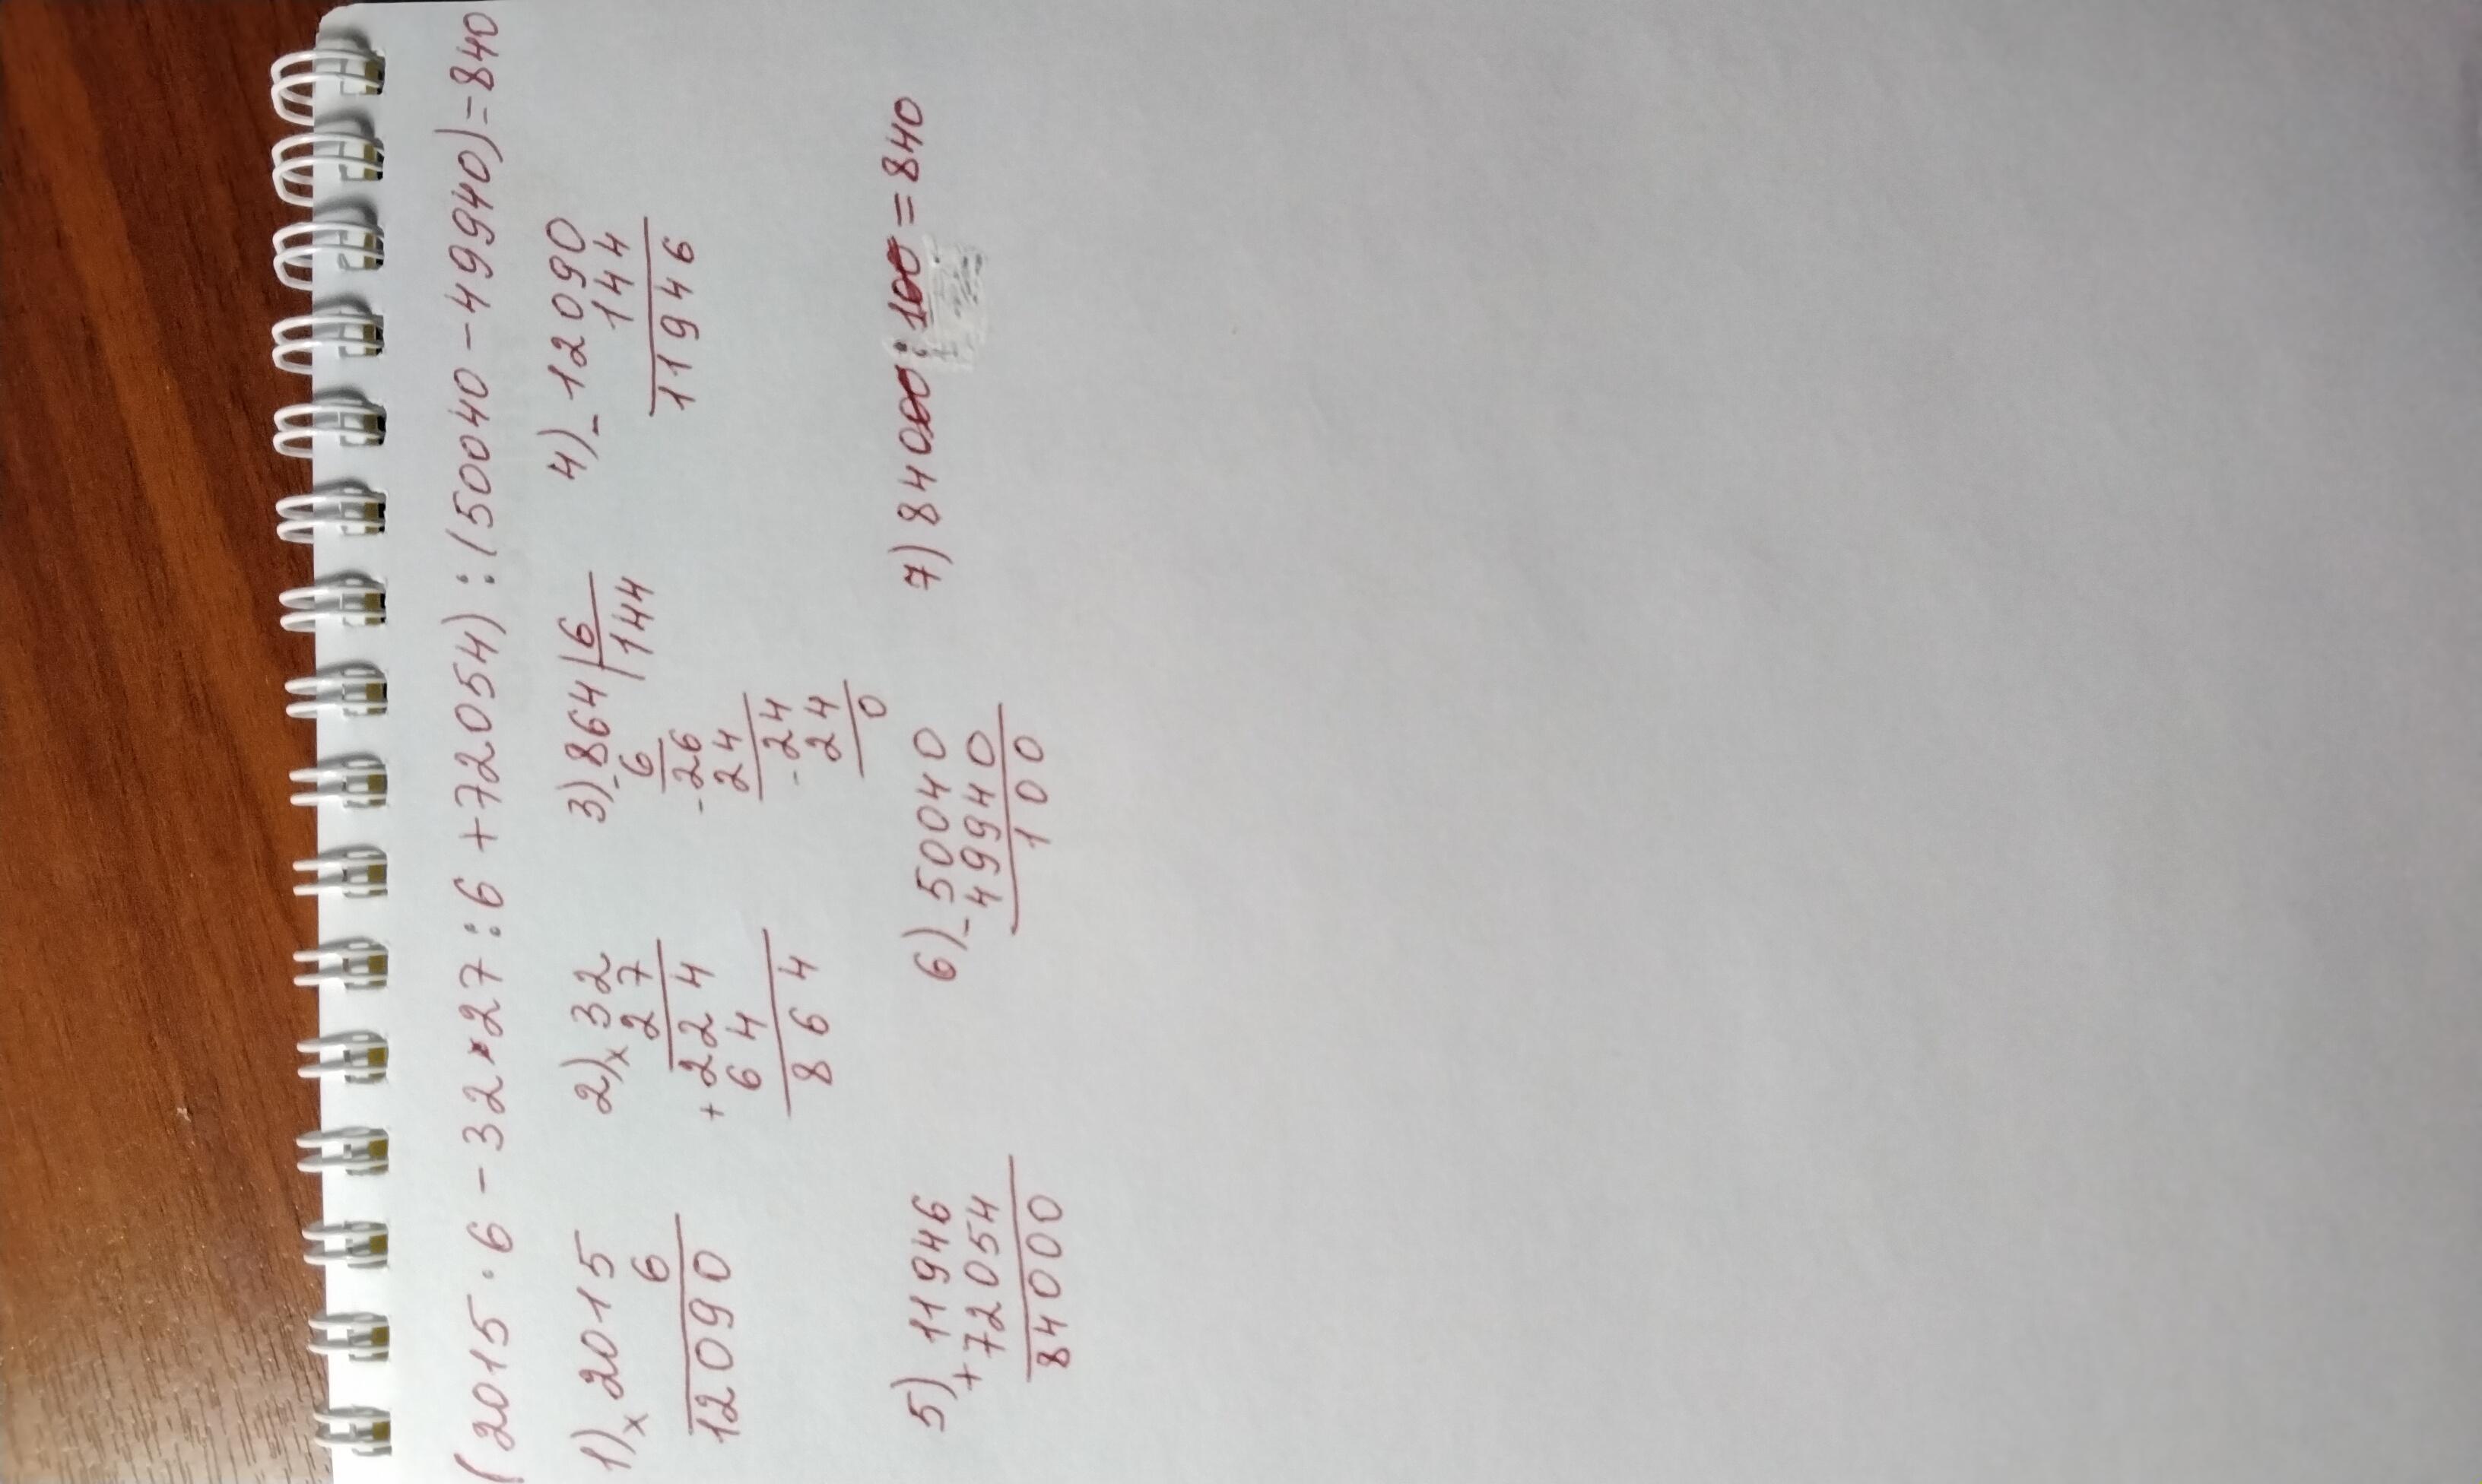 (2015·6-32×27:6+72054):(50040-49940)=840
1) × 2015 2) × 32 3) - 864 | 6 4) - 12090
6 27 6 | 144 144
12090 + 224 - 26 11946
64 24
864 - 24
24
0
5) + 11946 6) - 50040 7) 84000:100=840
72054 49940
84000 100